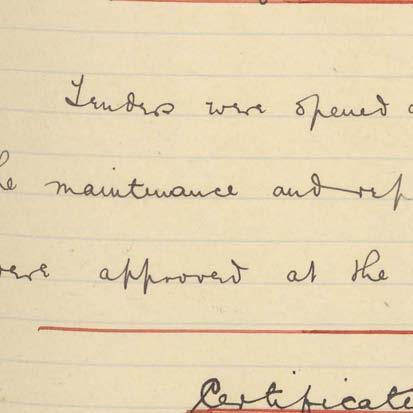 Tenders were opened a
he maintenance and rep
were approved at the
Certificate